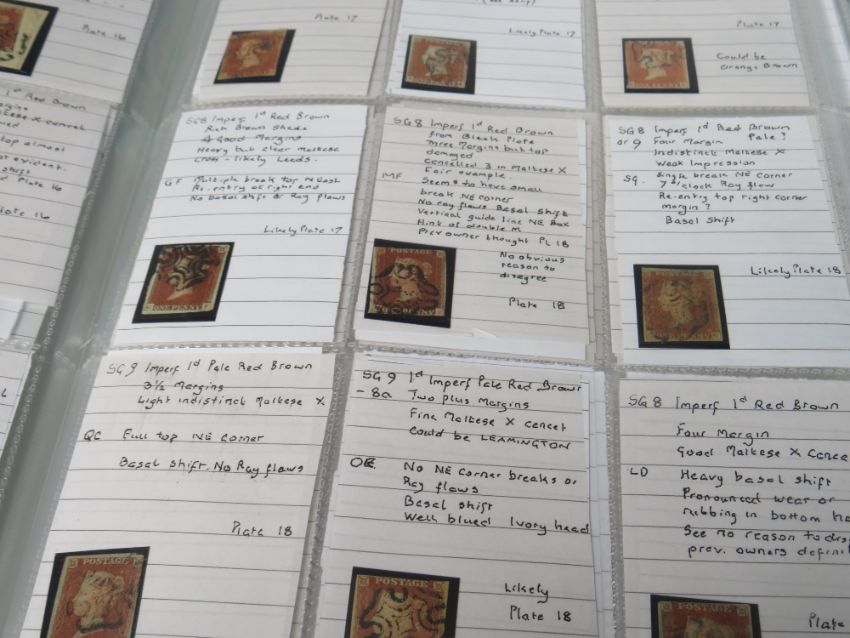 Plate 16
Plate 17
Likely Plate 17
Plate 17
Could be
Orange Brown
1st Red Brown
Maltese X cancel
top almost
not evident.
Plate 16
Plate 16
SG8 Imperf 1d Red Brown
Rich Brown Shade
4 Good Margins
Heavy but clear maltese
cross - likely Leeds.
GF Multiple break top NE
Re.entry at right end
No basal shift or Ray flaws
Likely Plate 17
ONE PENNY
SG8 Imperf 1d Red Brown
from Black Plate
Three Margins but top
damaged
Cancelled 3 in Maltese X
Fair example.
MF Seems to have small
break NE corner
No ray flaws Basal shift
Vertical guide line NE Box
Hint of double M
Prev owner thought Pl 18
No obvious
reason to
disagree
Plate 18
POSTAGE
SG8 Imperf 1d Red Brown
or 9 Four Margin Pale?
Indistinct Maltese X
Weak Impression
SG. Single break NE Corner
7 o'clock Ray flaw
Re-entry top right corner
margin?
Basal Shift
Likely Plate 18
SG 9 Imperf 1d Pale Red Brown
3½ Margins
Light indistinct Maltese X
QC Full top NE corner
Basal shift. No Ray flaws
Plate 18
POSTAGE
SG 9 1d Imperf Pale Red Brown
- 8a Two plus Margins
Fine Maltese X cancel
Could be LEAMINGTON
OE No NE Corner breaks or
Ray flaws
Basal shift
Well blued Ivory head
Likely
Plate 18
POSTAGE
SG 8 Imperf 1d Red Brown
Four Margin
Good Maltese X Cance
LD Heavy basal shift
Pronounced wear or
rubbing in bottom ha
See no reason to dis
prev. owners defini
Plate
POSTAGE